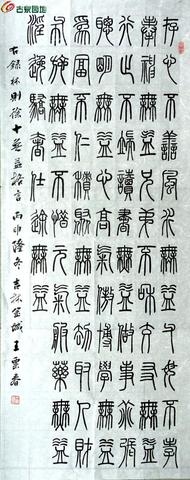 古泉园地
存心不善風水無益父母不孝
奉神無益兄弟不和交友無益
行止不端讀書無益做事乖張
聰明無益心高氣傲博學無益
為富不仁積聚無益劫取人財
布施無益不惜元氣服藥無益
淫逸驕奢仕途無益
右錄林則徐十無益格言 丙申隆冬 王雲春